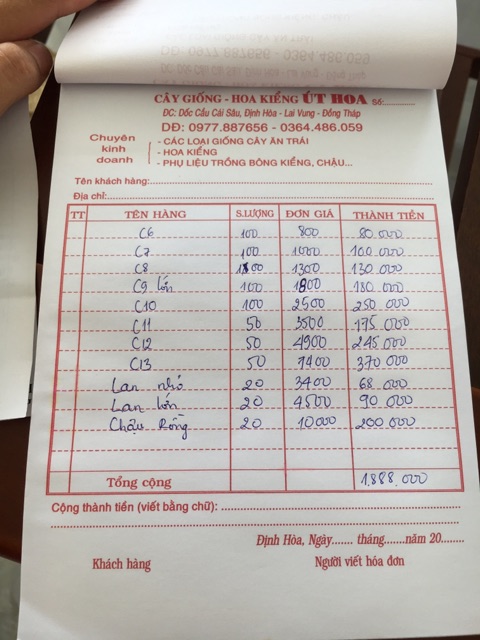 CÂY GIỐNG - HOA KIỂNG ÚT HOA Số:..........
ĐC: Dốc Cầu Cái Sâu, Định Hòa - Lai Vung - Đồng Tháp
DĐ: 0977.887656 - 0364.486.059
Chuyên kinh doanh
- CÁC LOẠI GIỐNG CÂY ĂN TRÁI
- HOA KIỂNG
- PHỤ LIỆU TRỒNG BÔNG KIỂNG, CHẬU...
Tên khách hàng:
Địa chỉ:
TT TÊN HÀNG S.LƯỢNG ĐƠN GIÁ THÀNH TIỀN
C6 100 800 80 000
C7 100 1000 100 000
C8 100 1300 130 000
C9 lớn 100 1800 180 000
C10 100 2500 250 000
C11 50 3500 175 000
C12 50 4900 245 000
C13 50 7400 370 000
Lan nhỏ 20 3400 68 000
Lan lớn 20 4500 90 000
Chậu Rồng 20 10000 200 000
Tổng cộng 1.888.000
Cộng thành tiền (viết bằng chữ):
Định Hòa, Ngày....... tháng.......năm 20........
Khách hàng Người viết hóa đơn